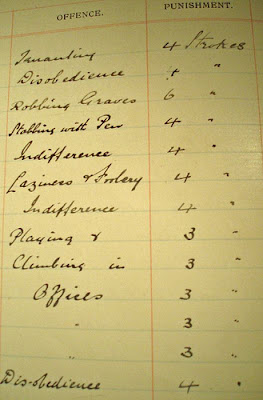 OFFENCE. PUNISHMENT.
Truanting 4 Strokes
Disobedience 4 "
Robbing Graves 6 "
Stabbing with Pen 4 "
Indifference 4 "
Laziness & Foolery 4 "
Indifference 4 "
Playing & 3 "
Climbing in 3 "
Offices 3 "
3 "
" 3 "
Dis-obedience 4 "